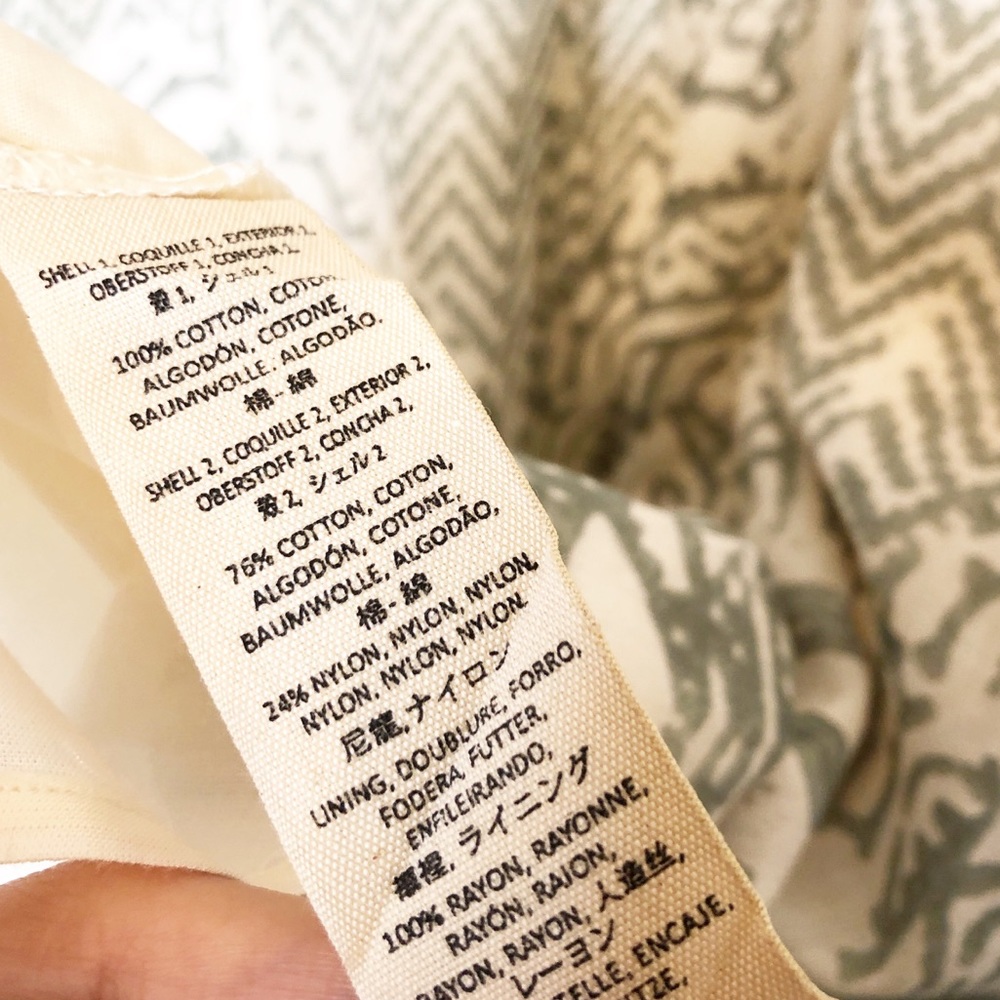 SHELL 1, COQUILLE 1, EXTERIOR 1,
OBERSTOFF 1, CONCHA 1,
殻 1, シェル 1
100% COTTON, COTON,
ALGODÓN, COTONE,
BAUMWOLLE, ALGODÃO,
棉-綿
SHELL 2, COQUILLE 2, EXTERIOR 2,
OBERSTOFF 2, CONCHA 2,
殻 2, シェル 2
76% COTTON, COTON,
ALGODÓN, COTONE,
BAUMWOLLE, ALGODÃO,
棉-綿
24% NYLON, NYLON, NYLON,
NYLON, NYLON, NYLON,
尼龍,ナイロン
LINING, DOUBLURE, FORRO,
FODERA, FUTTER,
ENFILEIRANDO,
ライニング
100% RAYON, RAYONNE,
RAYÓN, RAION,
RAYON, RAYON, 人造丝,
レーヨン
ENCAJE,